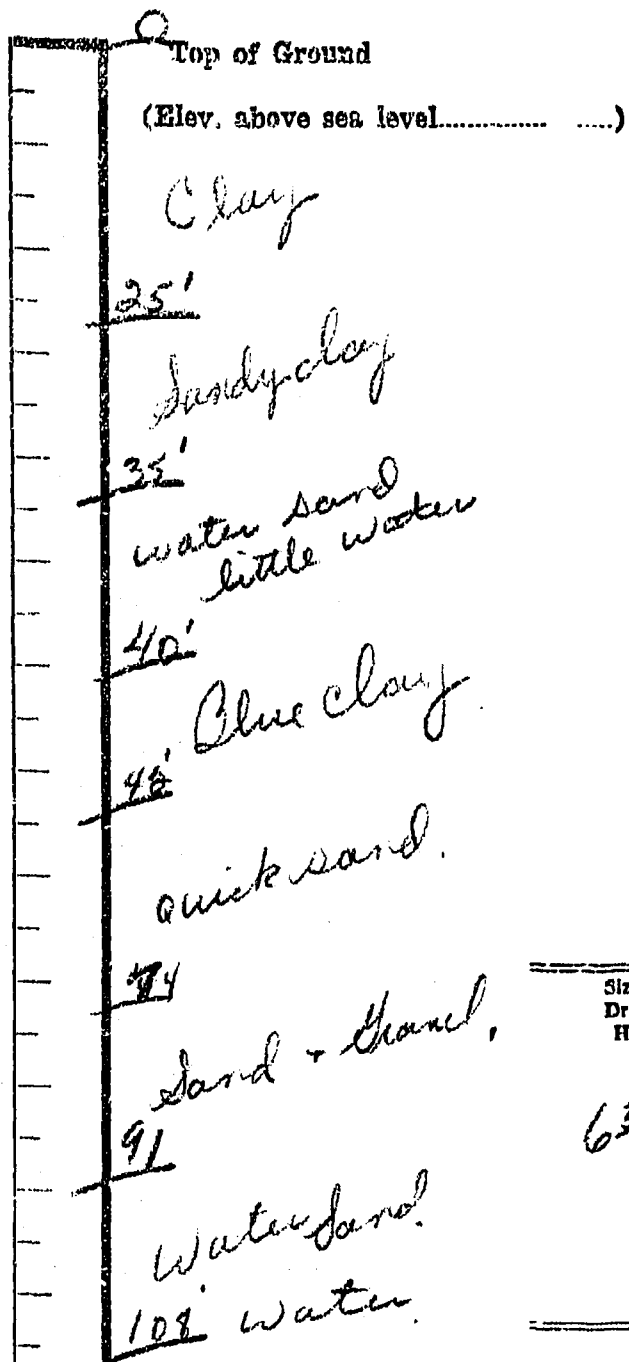 O
Top of Ground
(Elev. above sea level.............. .....)
Clay
25'
Sandy clay
35'
water sand
little water
40'
Blue clay
quick sand.
Siz
Dr
H
Sand + Gravel,
91
63
Water Sand.
108' water.